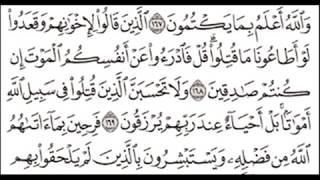 وَٱللَّهُ أَعْلَمُ بِمَا يَكْتُمُونَ ﴿١٦٧﴾ ٱلَّذِينَ قَالُوا۟ لِإِخْوَٰنِهِمْ وَقَعَدُوا۟
لَوْ أَطَاعُونَا مَا قُتِلُوا۟ ۗ قُلْ فَٱدْرَءُوا۟ عَنْ أَنفُسِكُمُ ٱلْمَوْتَ إِن
كُنتُمْ صَٰدِقِينَ ﴿١٦٨﴾ وَلَا تَحْسَبَنَّ ٱلَّذِينَ قُتِلُوا۟ فِى سَبِيلِ ٱللَّهِ
أَمْوَٰتًۢا ۚ بَلْ أَحْيَآءٌ عِندَ رَبِّهِمْ يُرْزَقُونَ ﴿١٦٩﴾ فَرِحِينَ بِمَآ ءَاتَىٰهُمُ
ٱللَّهُ مِن فَضْلِهِۦ وَيَسْتَبْشِرُونَ بِٱلَّذِينَ لَمْ يَلْحَقُوا۟ بِهِم